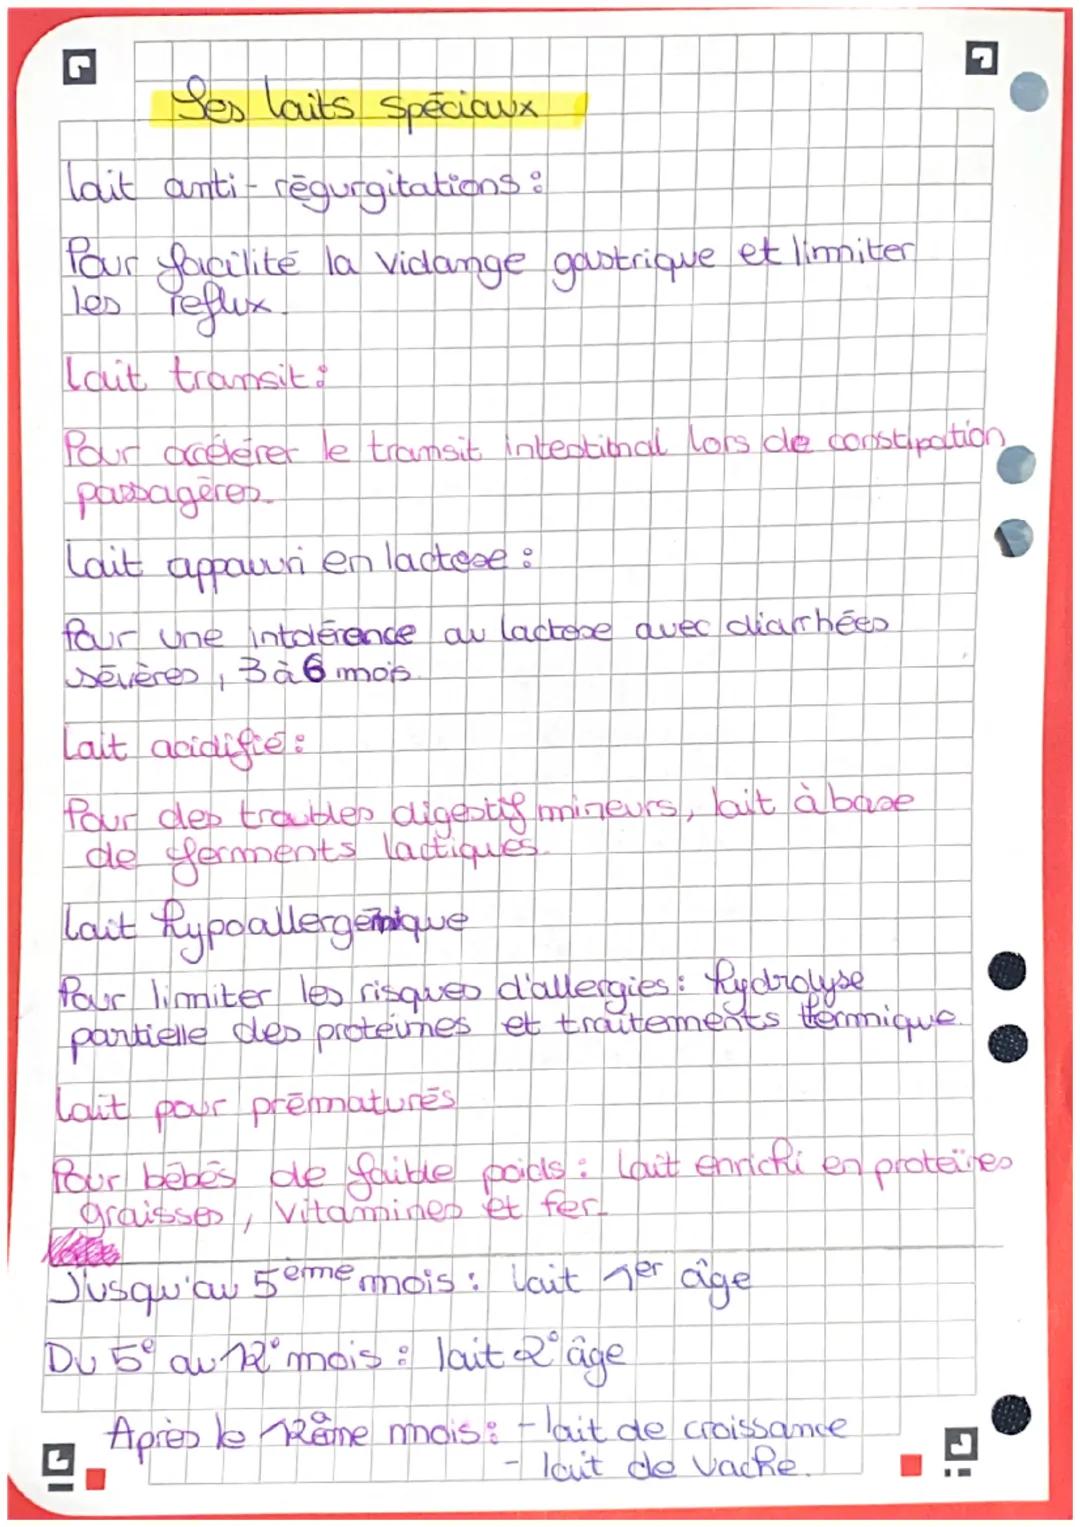 Les laits spéciaux
lait anti-régurgitations :
Pour facilité la vidange gastrique et limiter
les reflux.
Lait transit :
Pour accélérer le transit intestinal lors de constipation
passagères.
Lait appauvri en lactose :
Pour une intolérence au lactose avec diarrhées
sévères, 3 à 6 mois.
Lait acidifié :
Pour des troubles digestif mineurs, lait à base
de ferments lactiques.
Lait hypoallergénique
Pour limiter les risques d'allergies : hydrolyse
partielle des protéines et traitements termique.
Lait pour prématurés
Pour bébés de faible poids : Lait enrichi en protéines
graisses, vitamines et fer.
Jusqu'au 5ème mois : lait 1er âge
Du 5° au 12° mois : lait 2° âge
Après le 12ème mois : - lait de croissance
- lait de vache.